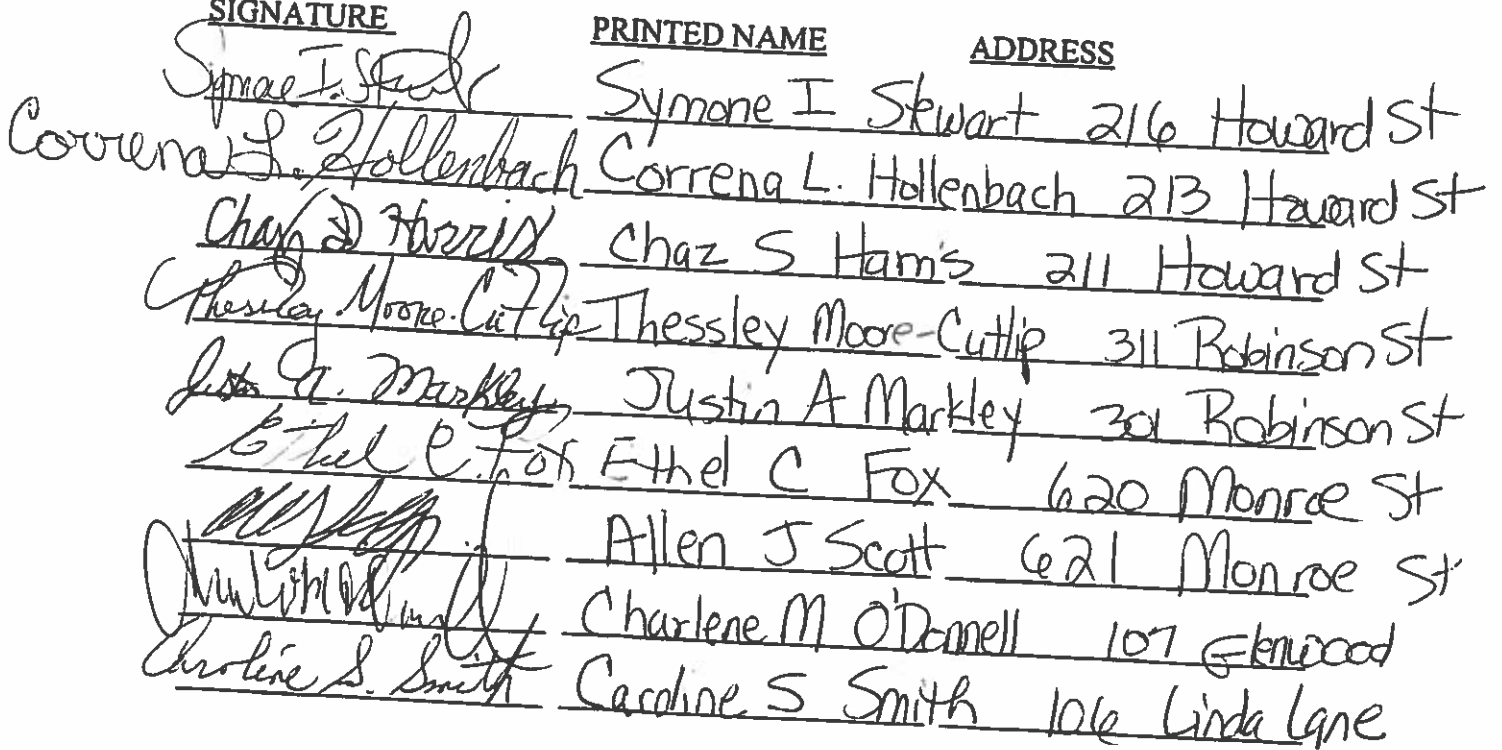 SIGNATURE PRINTED NAME ADDRESS
Symone I. Symone I Stewart 216 Howard St
Correna L. Hollenbach Correna L. Hollenbach 213 Howard St
Chaz S Harris Chaz S Harris 211 Howard St
Thessley Moore-Cutlip Thessley Moore-Cutlip 311 Robinson St
Justin A. Markley Justin A Markley 301 Robinson St
Ethel C. Fox Ethel C Fox 620 Monroe St
Allen J Scott 621 Monroe St
Charlene M O'Donnell 107 Glenwood
Caroline S. Smith Caroline S Smith 106 Linda Lane